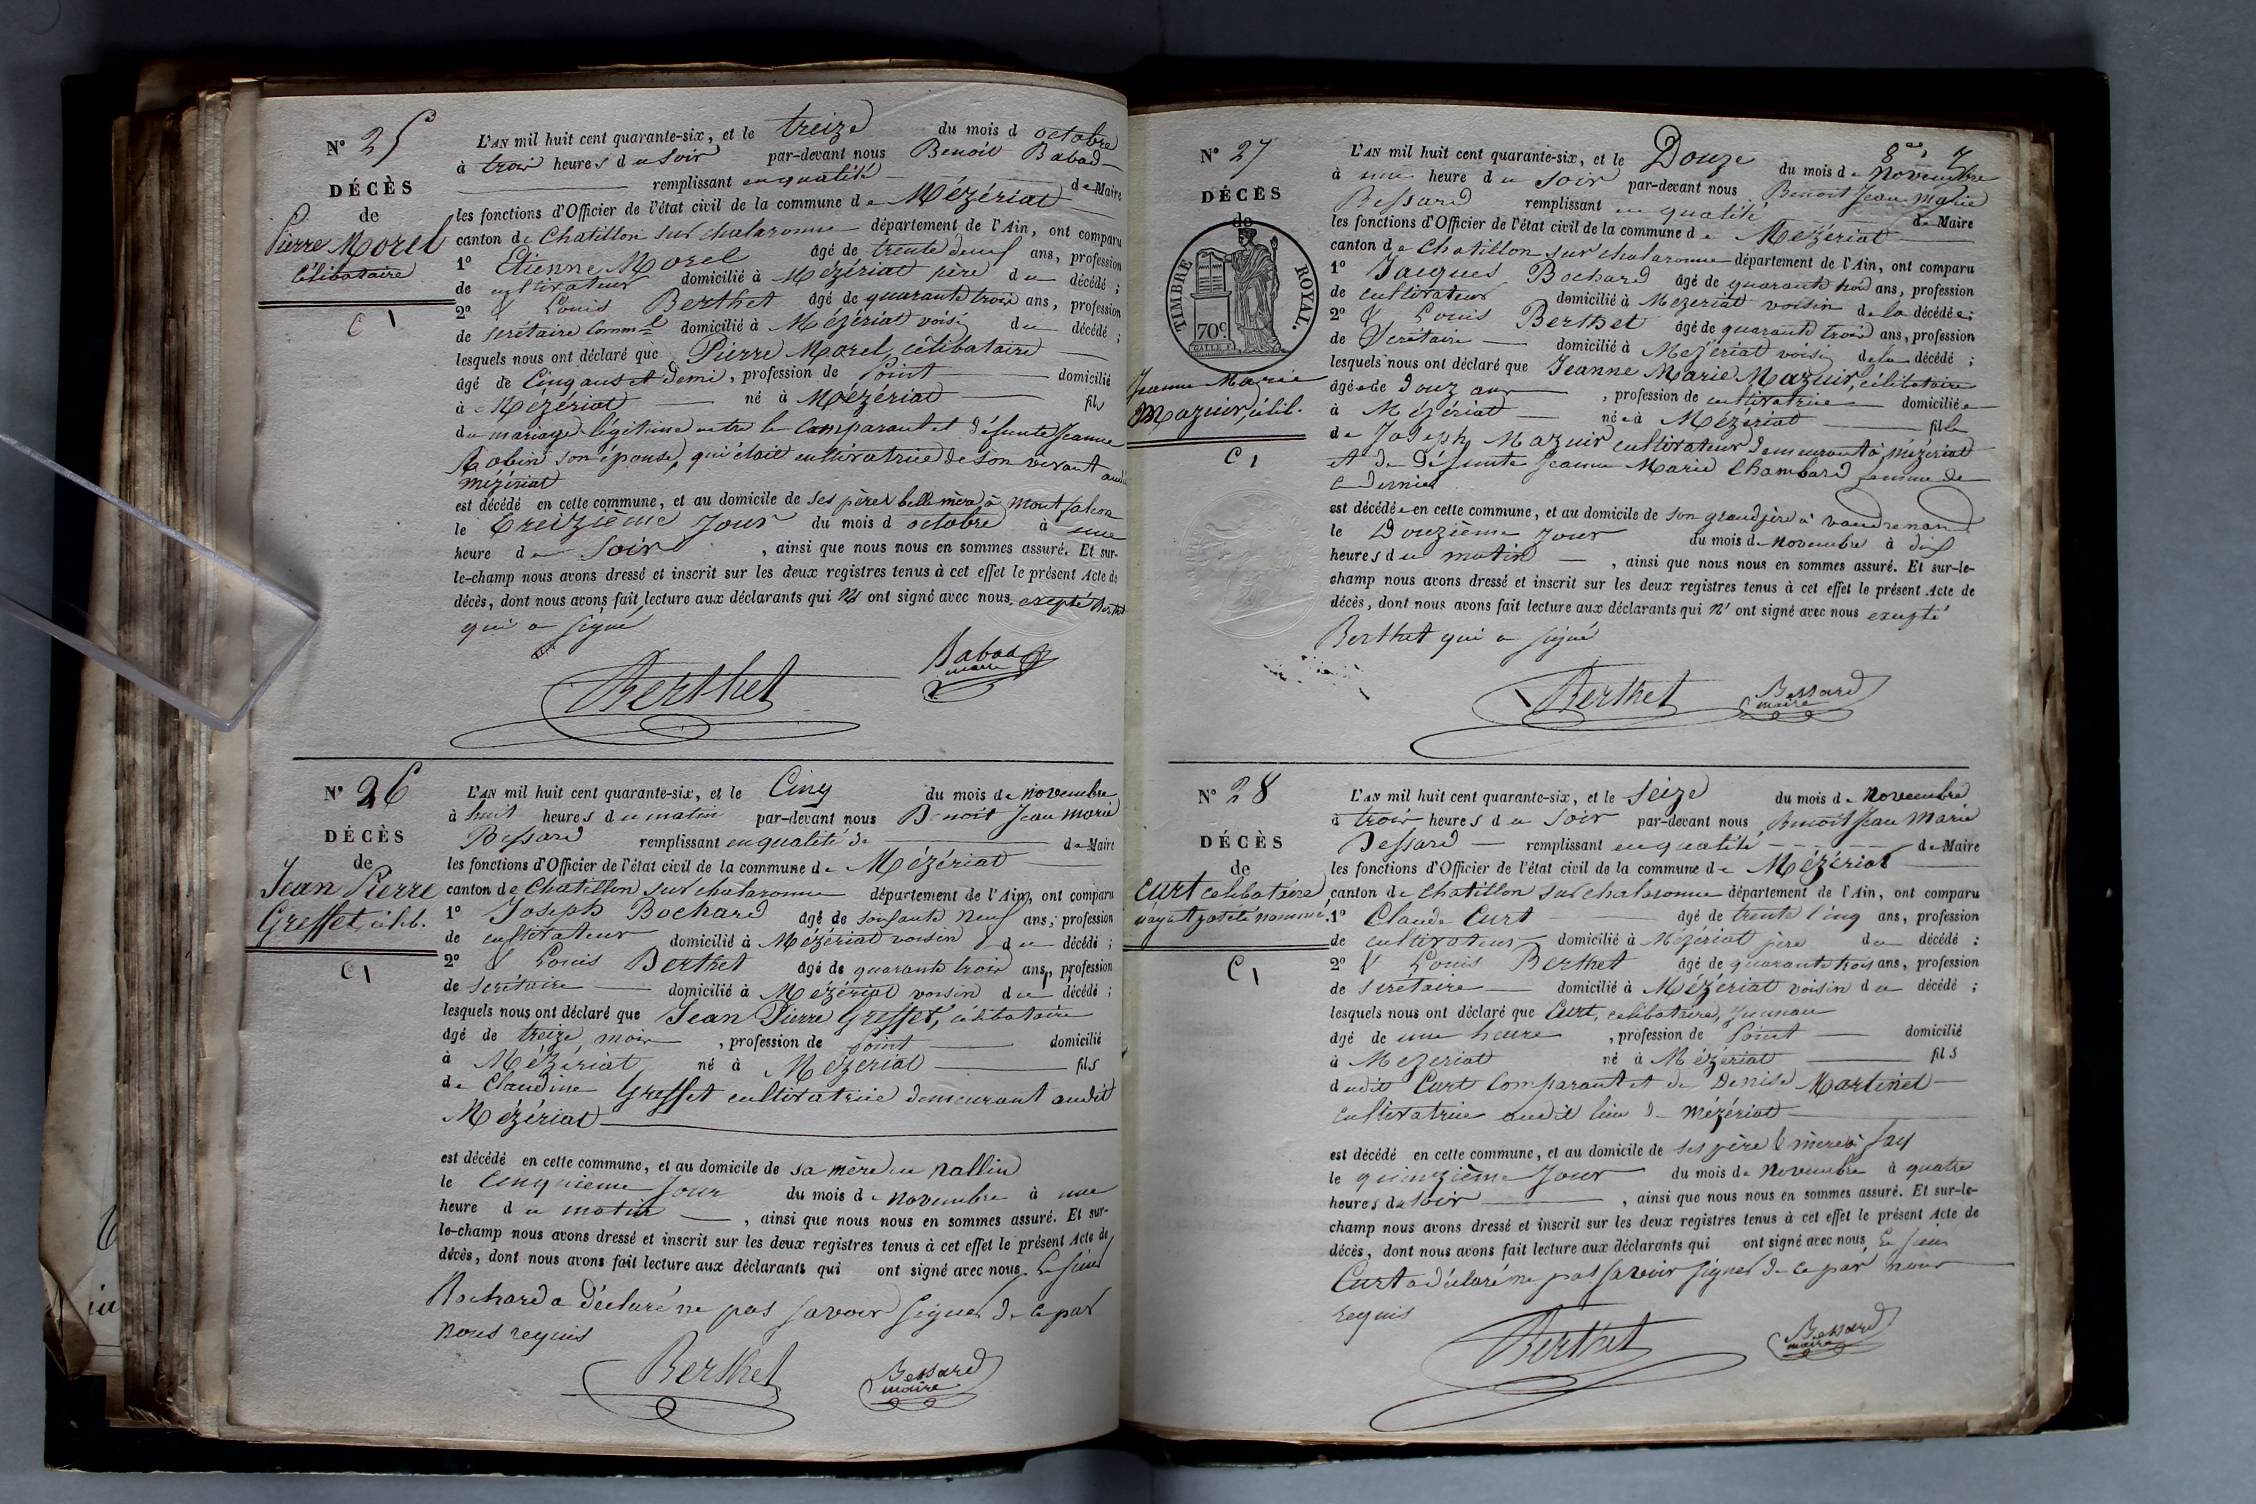 N° 25
DÉCÈS
de
Pierre Morel
Célibataire
C 1
L'AN mil huit cent quarante-six, et le treize du mois d octobre
à trois heures du soir par-devant nous Benoit Babad
remplissant en qualité de Maire
les fonctions d'Officier de l'état civil de la commune de Mézériat
canton de Chatillon sur chalaronne département de l'Ain, ont comparu
1° Etienne Morel âgé de trente deux ans, profession
de cultivateur domicilié à Mézériat père du décédé ;
2° & Louis Berthet âgé de quarante trois ans, profession
de secrétaire comm.l domicilié à Mézériat voisin du décédé ;
lesquels nous ont déclaré que Pierre Morel, célibataire
âgé de Cinq ans et demi, profession de Point domicilié
à Mézériat né à Mézériat fils
du mariage légitime entre le Comparant et défunte Jeanne
Robin son épouse, qui était cultivatrice de son vivant audit
Mézériat
est décédé en cette commune, et au domicile de ses père & belle mère à Montfalcon
le treizième jour du mois d octobre à une
heure du soir, ainsi que nous nous en sommes assuré. Et sur-
le-champ nous avons dressé et inscrit sur les deux registres tenus à cet effet le présent Acte de
décès, dont nous avons fait lecture aux déclarants qui n' ont signé avec nous excepté Berthet
qui a signé
Berthet
Babad
maire
N° 26
DÉCÈS
de
Jean Pierre
Greffet, célib.
C 1
L'AN mil huit cent quarante-six, et le Cinq du mois de novembre
à huit heures du matin par-devant nous Benoit Jean Marie
Bessard remplissant en qualité de de Maire
les fonctions d'Officier de l'état civil de la commune de Mézériat
canton de Chatillon sur chalaronne département de l'Ain, ont comparu
1° Joseph Bochard âgé de soixante neuf ans, profession
de cultivateur domicilié à Mézériat voisin du décédé ;
2° & Louis Berthet âgé de quarante trois ans, profession
de secrétaire domicilié à Mézériat voisin du décédé ;
lesquels nous ont déclaré que Jean Pierre Greffet, célibataire
âgé de treize mois, profession de point domicilié
à Mézériat né à Mézériat fils
de Claudine Greffet cultivatrice demeurant audit
Mézériat
est décédé en cette commune, et au domicile de sa mère au nallin
le Cinquième jour du mois de novembre à une
heure du matin, ainsi que nous nous en sommes assuré. Et sur-
le-champ nous avons dressé et inscrit sur les deux registres tenus à cet effet le présent Acte de
décès, dont nous avons fait lecture aux déclarants qui ont signé avec nous Le sieur
Bochard a déclaré ne pas savoir signer de ce par
nous requis
Berthet
Bessard
maire
N° 27
DÉCÈS
de
TIMBRE ROYAL.
70c
Jeanne Marie
Mazuir, célib.
C 1
L'AN mil huit cent quarante-six, et le Douze du mois de novembre
à une heure du soir par-devant nous Benoit Jean Marie
Bessard remplissant en qualité de Maire
les fonctions d'Officier de l'état civil de la commune de Mézériat
canton de Chatillon sur chalaronne département de l'Ain, ont comparu
1° Jacques Bochard âgé de quarante trois ans, profession
de cultivateur domicilié à Mézériat voisin de la décédée ;
2° & Louis Berthet âgé de quarante trois ans, profession
de Secrétaire domicilié à Mézériat voisin de la décédé ;
lesquels nous ont déclaré que Jeanne Marie Mazuir, célibataire
âgée de douz ans, profession de cultivatrice domiciliée
à Mézériat née à Mézériat fille
de Joseph Mazuir cultivateur demeurant à mézériat
et de Défunte Jeanne Marie Chambard femme de
ce dernier
est décédée en cette commune, et au domicile de son grand père à vaudrenand
le Douzième jour du mois de novembre à dix
heures du matin, ainsi que nous nous en sommes assuré. Et sur-le-
champ nous avons dressé et inscrit sur les deux registres tenus à cet effet le présent Acte de
décès, dont nous avons fait lecture aux déclarants qui n' ont signé avec nous excepté
Berthet qui a signé
Berthet
Bessard
maire
N° 28
DÉCÈS
de
Curt célibataire
n'ayant pas été nommé.
C 1
L'AN mil huit cent quarante-six, et le seize du mois de Novembre
à trois heures du soir par-devant nous Benoit Jean Marie
Bessard remplissant en qualité de Maire
les fonctions d'Officier de l'état civil de la commune de Mézériat
canton de Chatillon sur chalaronne département de l'Ain, ont comparu
1° Claude Curt âgé de trente Cinq ans, profession
de cultivateur domicilié à Mézériat père du décédé ;
2° & Louis Berthet âgé de quarante trois ans, profession
de secrétaire domicilié à Mézériat voisin du décédé ;
lesquels nous ont déclaré que Curt, célibataire, Jumeau
âgé de une heure, profession de Point domicilié
à Mézériat né à Mézériat fils
dudit Curt Comparant et de Denise Martinet
cultivatrice audit lieu de mézériat
est décédé en cette commune, et au domicile de ses père & mère à fay
le quinzième jour du mois de Novembre à quatre
heures du soir, ainsi que nous nous en sommes assuré. Et sur-le-
champ nous avons dressé et inscrit sur les deux registres tenus à cet effet le présent Acte de
décès, dont nous avons fait lecture aux déclarants qui ont signé avec nous Le sieur
Curt a déclaré ne pas savoir signer de ce par nous
requis
Berthet
Bessard
maire